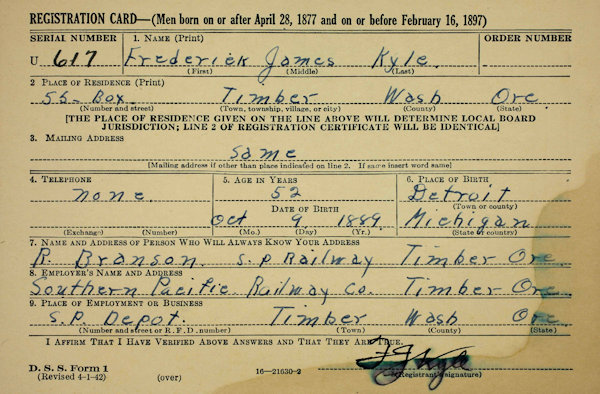 REGISTRATION CARD—(Men born on or after April 28, 1877 and on or before February 16, 1897)
SERIAL NUMBER 1. NAME (Print) ORDER NUMBER
U 617 Frederick James Kyle
(First) (Middle) (Last)
2 PLACE OF RESIDENCE (Print)
55-Box Timber Wash Ore
(Number and street) (Town, township, village, or city) (County) (State)
[THE PLACE OF RESIDENCE GIVEN ON THE LINE ABOVE WILL DETERMINE LOCAL BOARD
JURISDICTION; LINE 2 OF REGISTRATION CERTIFICATE WILL BE IDENTICAL]
3. MAILING ADDRESS
Same
[Mailing address if other than place indicated on line 2. If same insert word same]
4. TELEPHONE 5. AGE IN YEARS 6. PLACE OF BIRTH
none 52 Detroit
DATE OF BIRTH (Town or county)
Oct 9 1889 Michigan
(Exchange) (Number) (Mo.) (Day) (Yr.) (State or country)
7. NAME AND ADDRESS OF PERSON WHO WILL ALWAYS KNOW YOUR ADDRESS
R. Branson. S.P Railway Timber Ore
8. EMPLOYER'S NAME AND ADDRESS
Southern Pacific Railway Co. Timber Ore
9. PLACE OF EMPLOYMENT OR BUSINESS
S.P. Depot. Timber Wash Ore
(Number and street or R. F. D. number) (Town) (County) (State)
I AFFIRM THAT I HAVE VERIFIED ABOVE ANSWERS AND THAT THEY ARE TRUE.
F J Kyle
D. S. S. Form 1
(Revised 4-1-42) (over) 16—21630-2 (Registrant's signature)